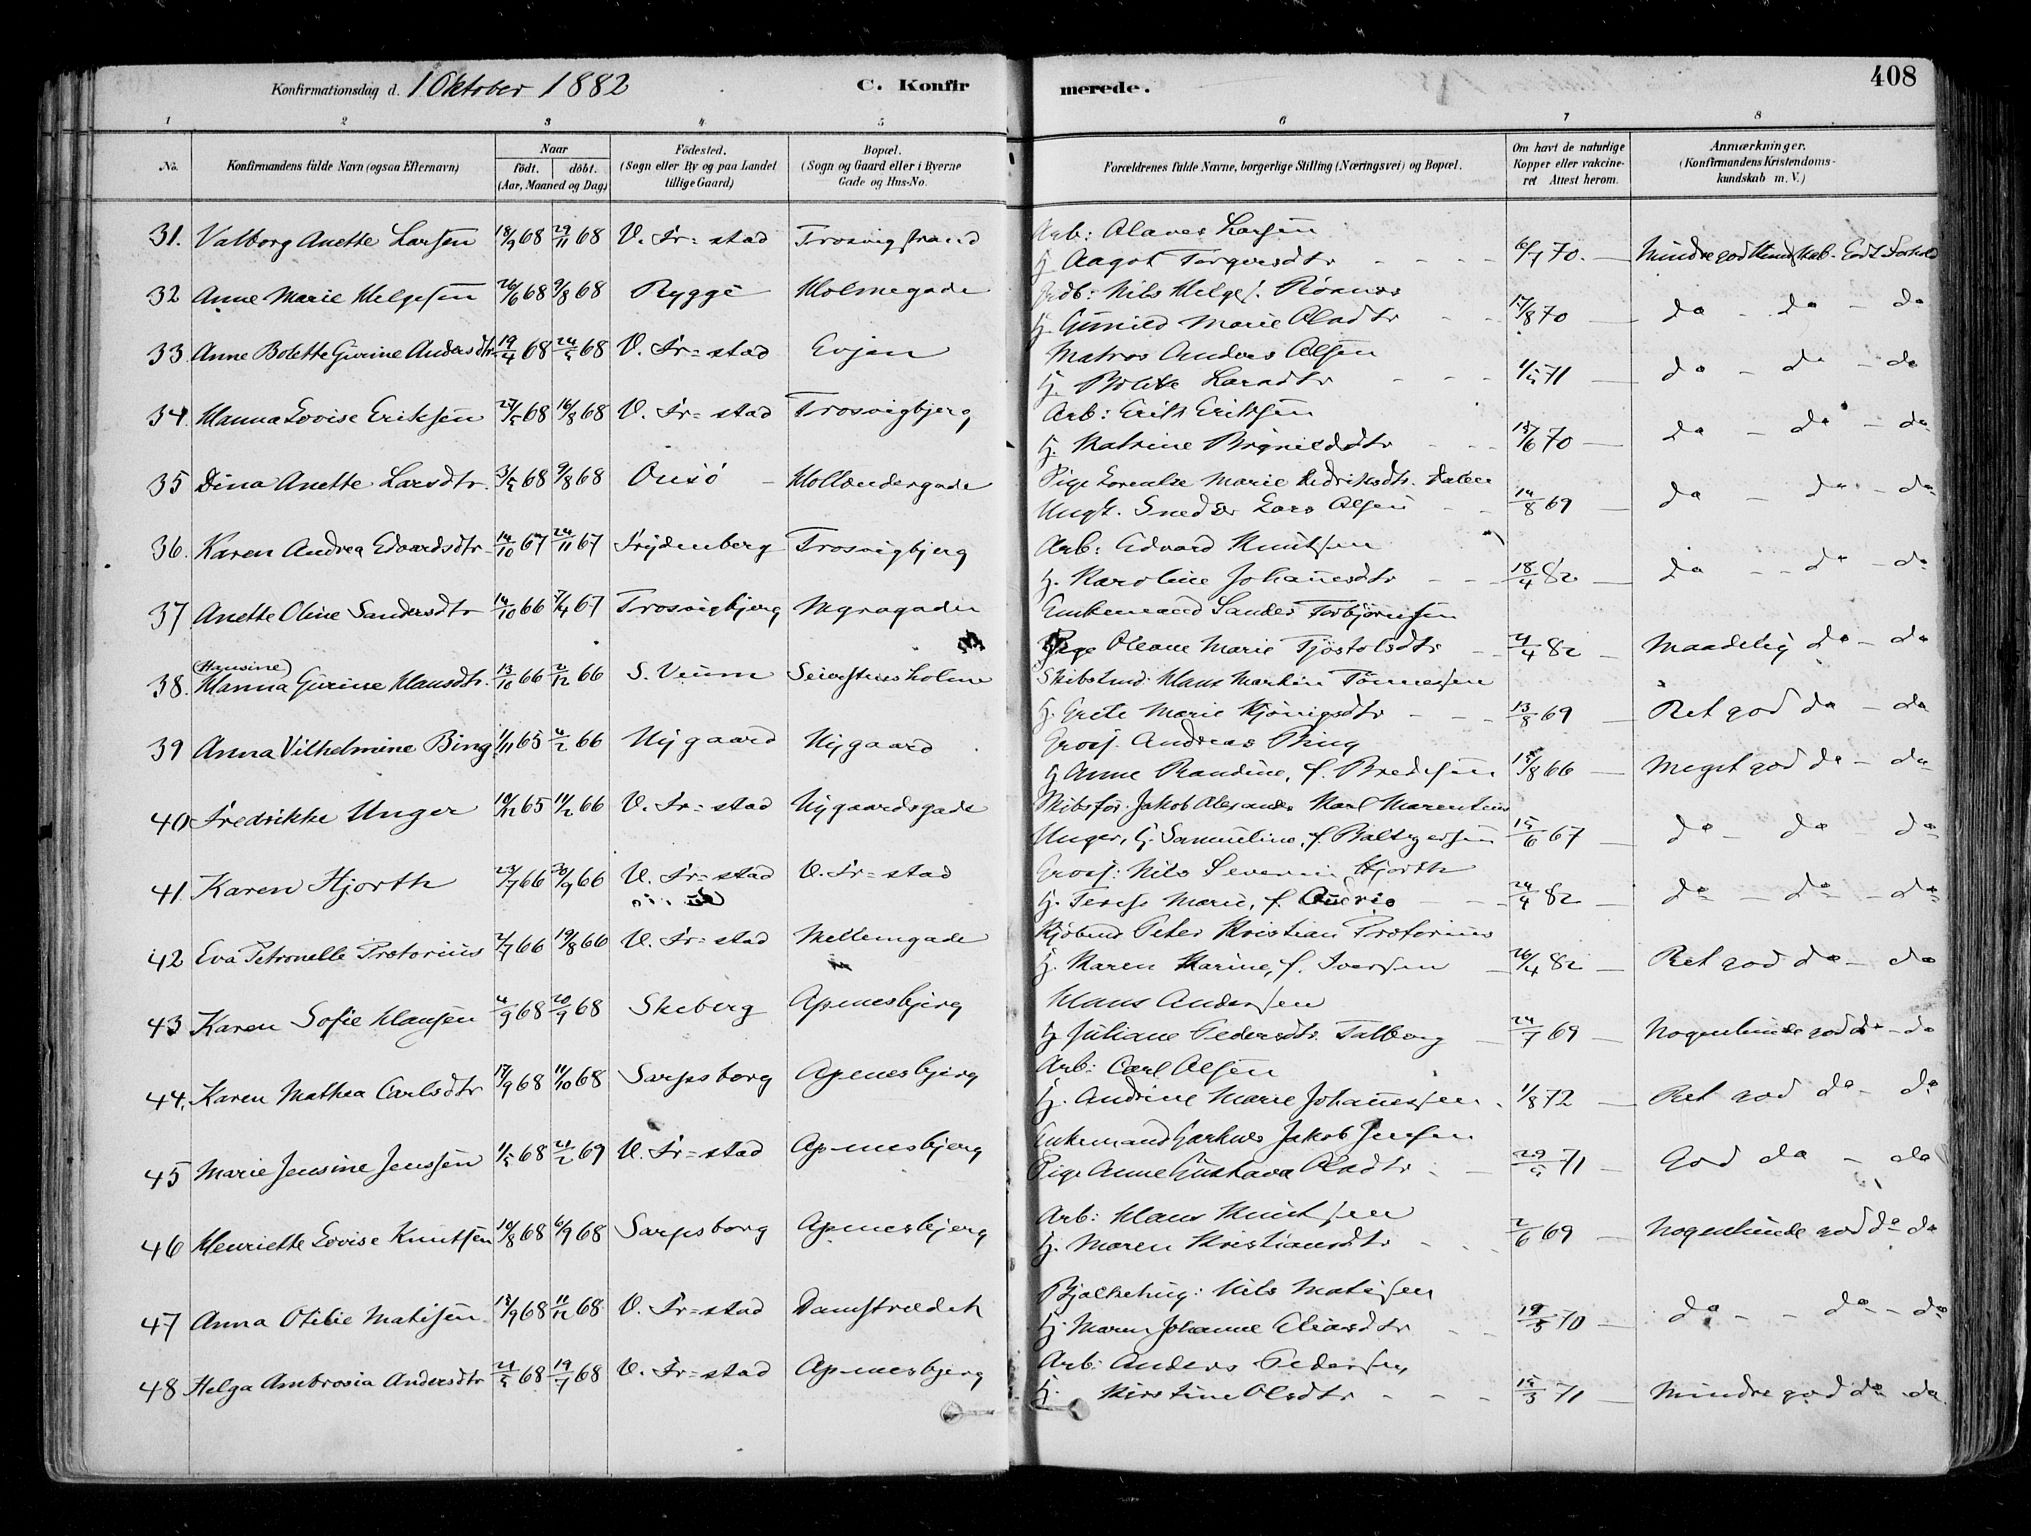 Konfirmationsdag d. 1 Oktober 1882 C. Konfirmerede. 408
1 2 3 4 5 6 7 8
No. Konfirmandens fulde Navn (ogsaa Efternavn) Naar født. døbt. (Aar, Maaned og Dag) Fødested. (Sogn eller By og paa Landet tillige Gaard) Bopæl. (Sogn og Gaard eller i Byerne Gade og Hus-No. Forældrenes fulde Navne, borgerlige Stilling (Næringsvei) og Bopæl. Om havt de naturlige Kopper eller vakcineret Attest herom. Anmærkninger. (Konfirmandens Kristendomskundskab m. V.)
31. Valborg Anette Larsen 18/9 68 29/11 68 V. Fr=stad Trosvigstrand Arb: Olaves Larsen
H. Aagot Torgersdtr 6/7 70. Mindre god Kundskab. Godt Forhold
32 Anne Marie Helgesen 26/6 68 9/8 68 Rygge Holmegade Nils Helges. Roanes
H. Gunild Marie Olsdtr 17/8 70 do - do - do
33 Anne Bolette Gurine Andersdtr 19/4 68 24/5 68 V. Fr=stad Evjen Matros Anders Olsen
H. Bolette Larsdtr 1/5 71 do - do - do
34 Hanna Lovise Eriksen 27/5 68 16/8 68 V. Fr=stad Trosvigbjerg Arb: Erik Eriksen
H. Katrine Brynildsdtr 15/6 70 do - do - do
35 Dina Anette Larsdtr. 3/5 68 9/8 68 Onsö Hollændergade Pige Lorentse Marie Fedriksdtr.
Ungk. Snedker Lars Olsen 14/8 69 do - do - do
36. Karen Andrea Edvardsdtr 14/10 67 24/11 67 Frydenberg Trosvigbjerg Arb: Edvard Knutsen
H. Karoline Johannesdtr 18/4 82 do - do - do
37 Anette Oline Sandersdtr 14/10 66 7/4 67 Trosvigbjerg Nygaden Enkemand Sander Torbjørnsen
Pige Oleane Marie Tjøstolsdtr 21/4 82 Maadelig do - do
(Hansine)
38. Hanna Gurine Klausdtr. 13/10 66 2/12 66 S. Veum Seierstensholm Skibstmd. Klaus Martin Tønnesen
H. Grete Marie Kjønigsdtr 13/8 69 Ret god do - do
39 Anna Vilhelmine Bing 1/11 65 4/2 66 Nygaard Nygaard Gross. Andreas Bing
H. Anne Randine, f. Bredesen 15/8 66 Meget god do - do
40 Fredrikke Unger 10/12 65 11/2 66 V. Fr=stad Nygaardsgade Skibsfør. Jakob Alexander Karl Marentius
Unger, H. Samueline, f. Baltzersen 15/6 67 do - do do
41. Karen Hjorth 23/7 66 30/9 66 V. Fr=stad V. Fr=stad Gross: Nils Severin Hjorth
H. Terese Marie, f. 24/4 82 do - do - do
42 Eva Petronelle Prætorius 2/7 66 19/8 66 V. Fr=stad Mellemgade Kjøbmd Peter Kristian Prætorius
H. Maren Karine, f. Iversen 26/4 82 Ret god do - do
43 Karen Sofie Klausen 4/9 68 20/9 68 Skeberg Apenesbjerg Klaus Andersen
H. Juliane Pedersdtr. Talberg 24/7 69 Nogenlunde god do - do
44. Karen Mathea Carlsdtr 17/9 68 11/10 68 Sarpsborg Apenesbjerg Arb: Carl Olsen
H. Andrine Marie Johannessen 1/8 72 Ret god do - do
45 Marie Jensine Jenssen 1/5 68 21/2 69 V. Fr=stad Apenesbjerg Enkemand Jakob Jensen
Pige Anne Gustava Olsdtr 29/5 71 God do - do
46 Henriette Lovise Knutsen 10/8 68 6/9 68 Sarpsborg Apenesbjerg Arb: Klaus Knutsen
H. Maren Kristiansdtr 2/6 69 Nogenlunde god do do
47 Anna Otilie Matisen 18/9 68 11/12 68 V. Fr=stad Damstrædet Bjælkehug: Nils Matisen
H. Maren Johanne Eliasdtr 19/5 70 do - - do - do
48 Helga Ambrosia Andersdtr 21/5 68 19/7 68 V. Fr=stad Apenesbjerg Arb: Anders Pedersen
H. Kirstine Olsdtr 15/3 71 Mindre god do do